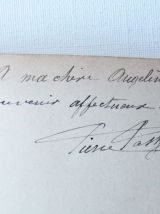 A ma chère Angelin
ouvenir affectueux
Pierre